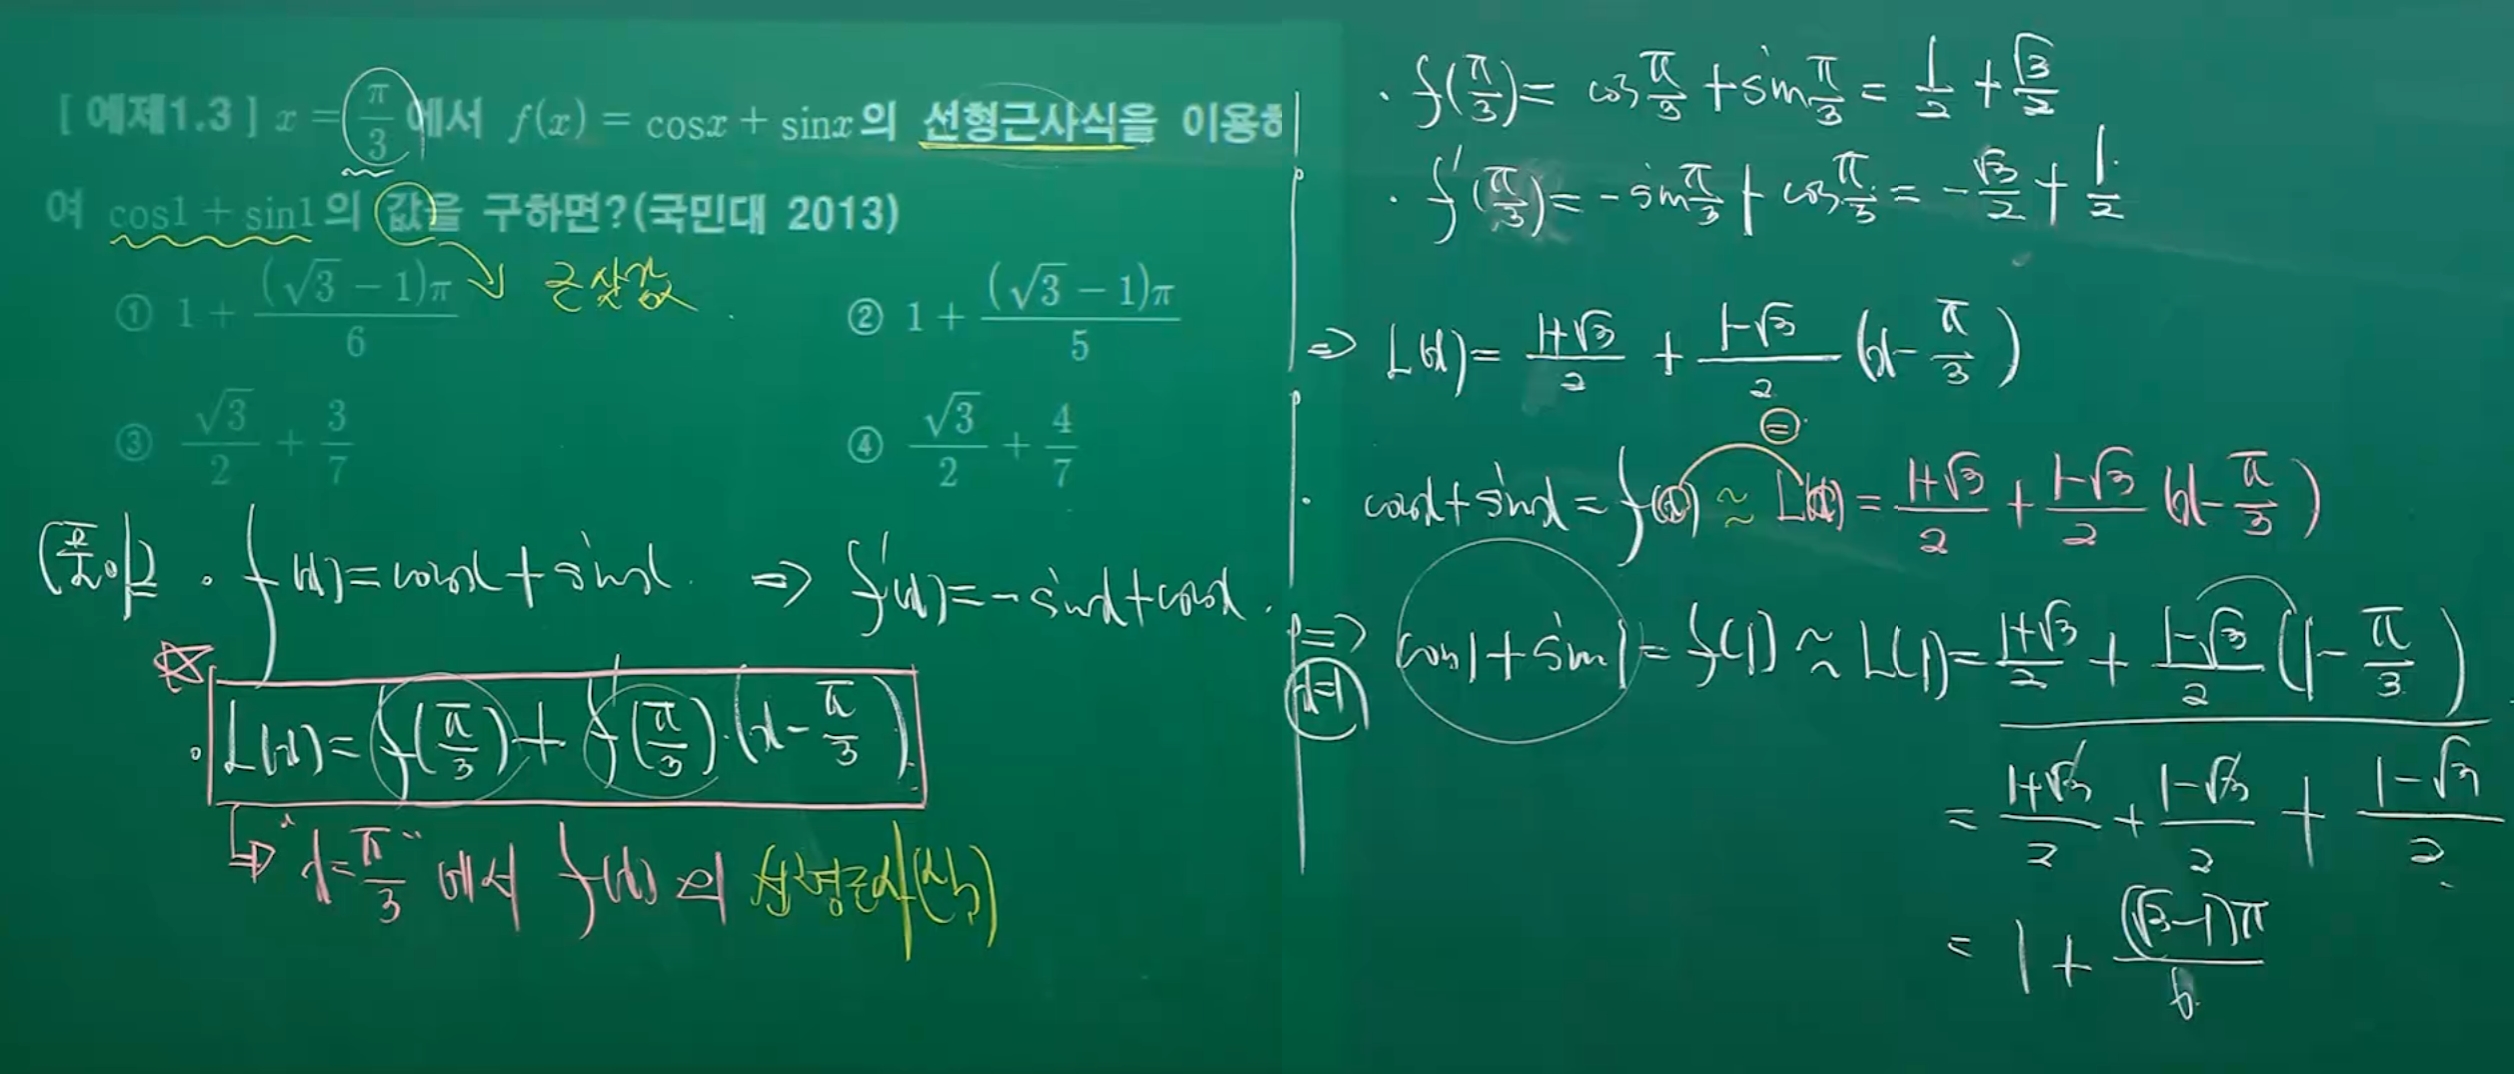 [ 예제1.3 ] x = π/3 에서 f(x) = cosx + sinx의 선형근사식을 이용하
여 cos1 + sin1의 값을 구하면?(국민대 2013)
근삿값
① 1 + (√3 − 1)π/6
② 1 + (√3 − 1)π/5
③ √3/2 + 3/7
④ √3/2 + 4/7
(풀이) · f(x) = cosx + sinx. ⇒ f'(x) = −sinx + cosx.
☆ · L(x) = f(π/3) + f'(π/3)·(x − π/3)
⇒ "x = π/3" 에서 f(x)의 선형근사(식)
· f(π/3) = cos π/3 + sin π/3 = 1/2 + √3/2
· f'(π/3) = −sin π/3 + cos π/3 = −√3/2 + 1/2
⇒ L(x) = (1+√3)/2 + (1−√3)/2 (x − π/3)
=
· cosx + sinx = f(x) ≈ L(x) = (1+√3)/2 + (1−√3)/2 (x − π/3)
⇒ cos1 + sin1 = f(1) ≈ L(1) = (1+√3)/2 + (1−√3)/2 (1 − π/3)
x=1
= (1+√3)/2 + (1−√3)/2 + (1−√3)/2
= 1 + (√3−1)π/6